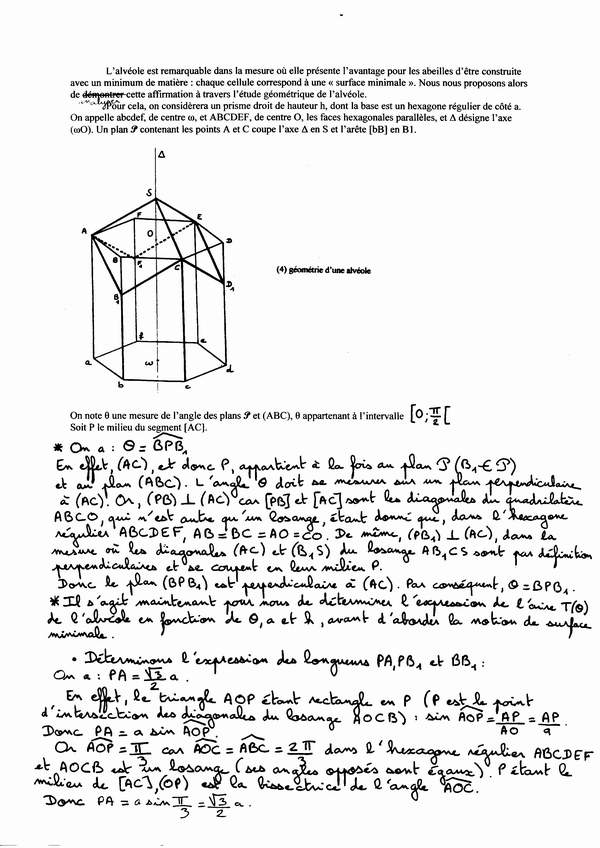 L'alvéole est remarquable dans la mesure où elle présente l'avantage pour les abeilles d'être construite
avec un minimum de matière : chaque cellule correspond à une « surface minimale ». Nous nous proposons alors
de démontrer cette affirmation à travers l'étude géométrique de l'alvéole.
analyser
Pour cela, on considèrera un prisme droit de hauteur h, dont la base est un hexagone régulier de côté a.
On appelle abcdef, de centre ω, et ABCDEF, de centre O, les faces hexagonales parallèles, et Δ désigne l'axe
(ωO). Un plan 𝒫 contenant les points A et C coupe l'axe Δ en S et l'arête [bB] en B1.
Δ
S
F
E
A
O
D
B
F1
C
B1
D1
f
e
a
ω
d
b
c
(4) géométrie d'une alvéole
On note θ une mesure de l'angle des plans 𝒫 et (ABC), θ appartenant à l'intervalle [0 ; π/2 [
Soit P le milieu du segment [AC].
* On a : θ = BPB1
En effet, (AC), et donc P, appartient à la fois au plan 𝒫 (B1 ∈ 𝒫)
et au plan (ABC). L'angle θ doit se mesurer sur un plan perpendiculaire
à (AC). Or, (PB) ⊥ (AC) car [PB] et [AC] sont les diagonales du quadrilatère
ABCO, qui n'est autre qu'un losange, étant donné que, dans l'hexagone
régulier ABCDEF, AB = BC = AO = CO. De même, (PB1) ⊥ (AC), dans la
mesure où les diagonales (AC) et (B1S) du losange AB1CS sont par définition
perpendiculaires et se coupent en leur milieu P.
Donc le plan (BPB1) est perpendiculaire à (AC). Par conséquent, θ = BPB1.
* Il s'agit maintenant pour nous de déterminer l'expression de l'aire T(θ)
de l'alvéole en fonction de θ, a et h, avant d'aborder la notion de surface
minimale.
• Déterminons l'expression des longueurs PA, PB1 et BB1 :
On a : PA = √3/2 a.
En effet, le triangle AOP étant rectangle en P (P est le point
d'intersection des diagonales du losange AOCB) : sin AOP = AP/AO = AP/a.
Donc PA = a sin AOP.
Or AOP = π/3 car AOC = ABC = 2π/3 dans l'hexagone régulier ABCDEF
et AOCB est un losange (ses angles opposés sont égaux). P étant le
milieu de [AC], (OP) est la bissectrice de l'angle AOC.
Donc PA = a sin π/3 = √3/2 a.